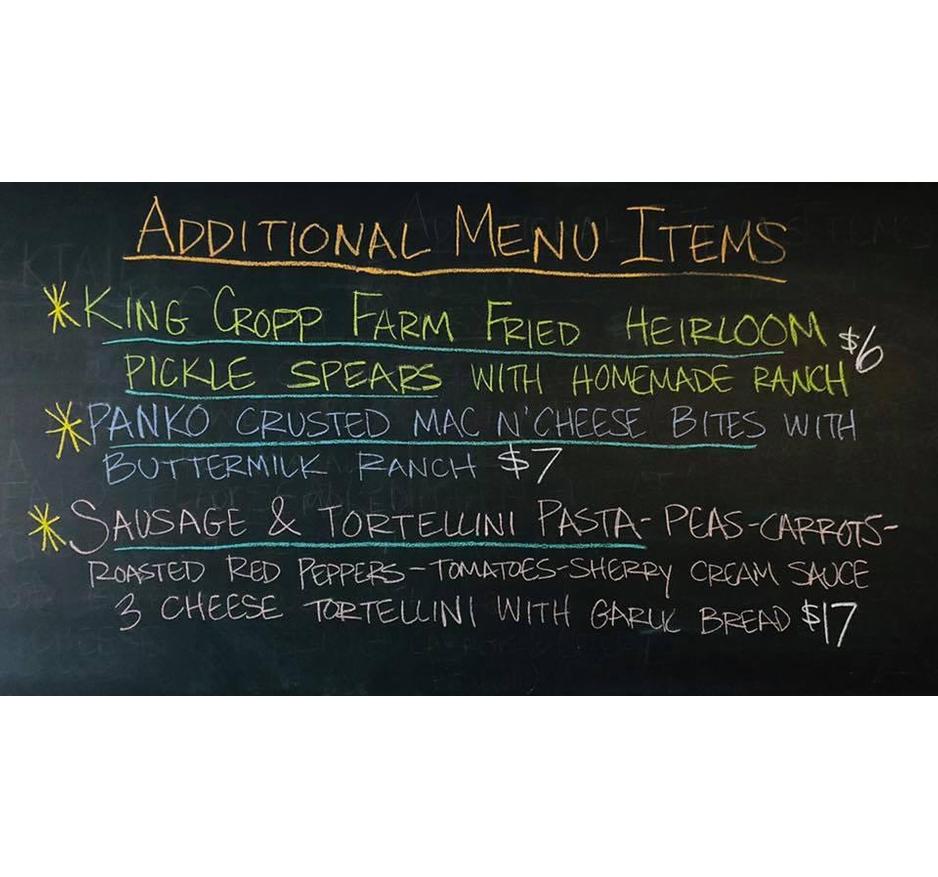 ADDITIONAL MENU ITEMS
*KING CROPP FARM FRIED HEIRLOOM $6
PICKLE SPEARS WITH HOMEMADE RANCH
*PANKO CRUSTED MAC N'CHEESE BITES WITH
BUTTERMILK RANCH $7
*SAUSAGE & TORTELLINI PASTA-PEAS-CARROTS-
ROASTED RED PEPPERS-TOMATOES-SHERRY CREAM SAUCE
3 CHEESE TORTELLINI WITH GARLIC BREAD $17